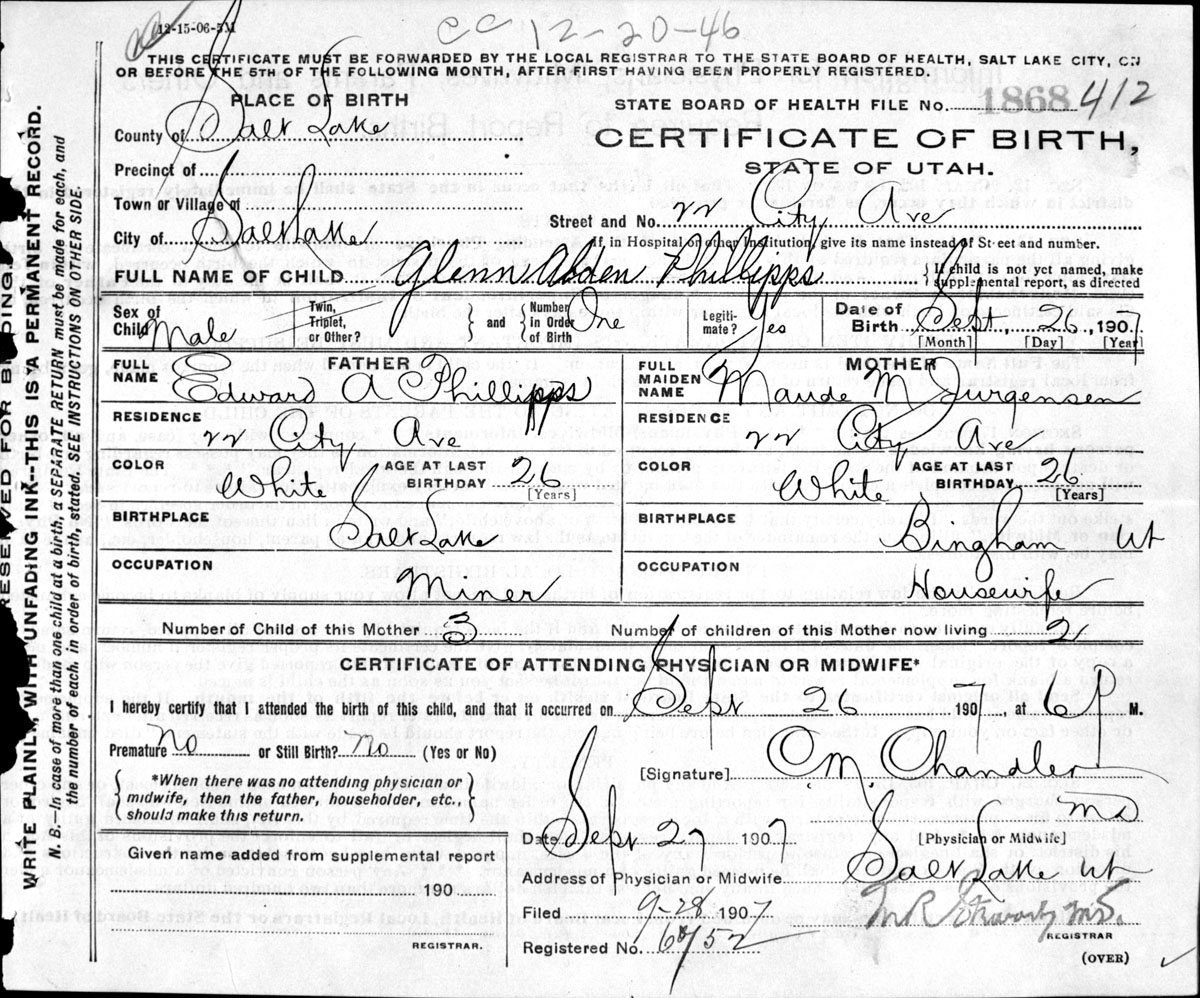 12-15-06-5M
CC 12-20-46
THIS CERTIFICATE MUST BE FORWARDED BY THE LOCAL REGISTRAR TO THE STATE BOARD OF HEALTH, SALT LAKE CITY, ON
OR BEFORE THE 5TH OF THE FOLLOWING MONTH, AFTER FIRST HAVING BEEN PROPERLY REGISTERED.
PLACE OF BIRTH
STATE BOARD OF HEALTH FILE No. 1868 412
County of Salt Lake
CERTIFICATE OF BIRTH,
STATE OF UTAH.
Precinct of
Town or Village of
Street and No. 22 City Ave
City of Salt Lake
If, in Hospital or other Institution, give its name instead of Street and number.
FULL NAME OF CHILD Glenn Alden Phillipps
If child is not yet named, make
supplemental report, as directed
Sex of Child Male
Twin, Triplet, or Other?
and
Number in Order of Birth One
Legiti- mate? Yes
Date of Birth Sept 26, 1907
[Month] [Day] [Year]
FATHER
FULL NAME Edward A Phillipps
MOTHER
FULL MAIDEN NAME Maude M Jurgensen
RESIDENCE 22 City Ave
RESIDENCE 22 City Ave
COLOR White AGE AT LAST BIRTHDAY 26 [Years]
COLOR White AGE AT LAST BIRTHDAY 26 [Years]
BIRTHPLACE Salt Lake
BIRTHPLACE Bingham Ut
OCCUPATION Miner
OCCUPATION Housewife
Number of Child of this Mother 3
Number of children of this Mother now living 2
CERTIFICATE OF ATTENDING PHYSICIAN OR MIDWIFE*
I hereby certify that I attended the birth of this child, and that it occurred on Sept 26 1907, at 6 P M.
Premature No or Still Birth? No (Yes or No)
*When there was no attending physician or
midwife, then the father, householder, etc.,
should make this return.
[Signature] O M. Chandler
MD
[Physician or Midwife]
Date Sept 27 1907
Given name added from supplemental report
190
REGISTRAR.
Address of Physician or Midwife Salt Lake Ut
Filed 9-28 1907
M.D.
REGISTRAR
Registered No.
(OVER)
RESERVED FOR BINDING.
WRITE PLAINLY, WITH UNFADING INK--THIS IS A PERMANENT RECORD.
N. B. In case of more than one child at a birth, a SEPARATE RETURN must be made for each, and
the number of each, in order of birth, stated. SEE INSTRUCTIONS ON OTHER SIDE.